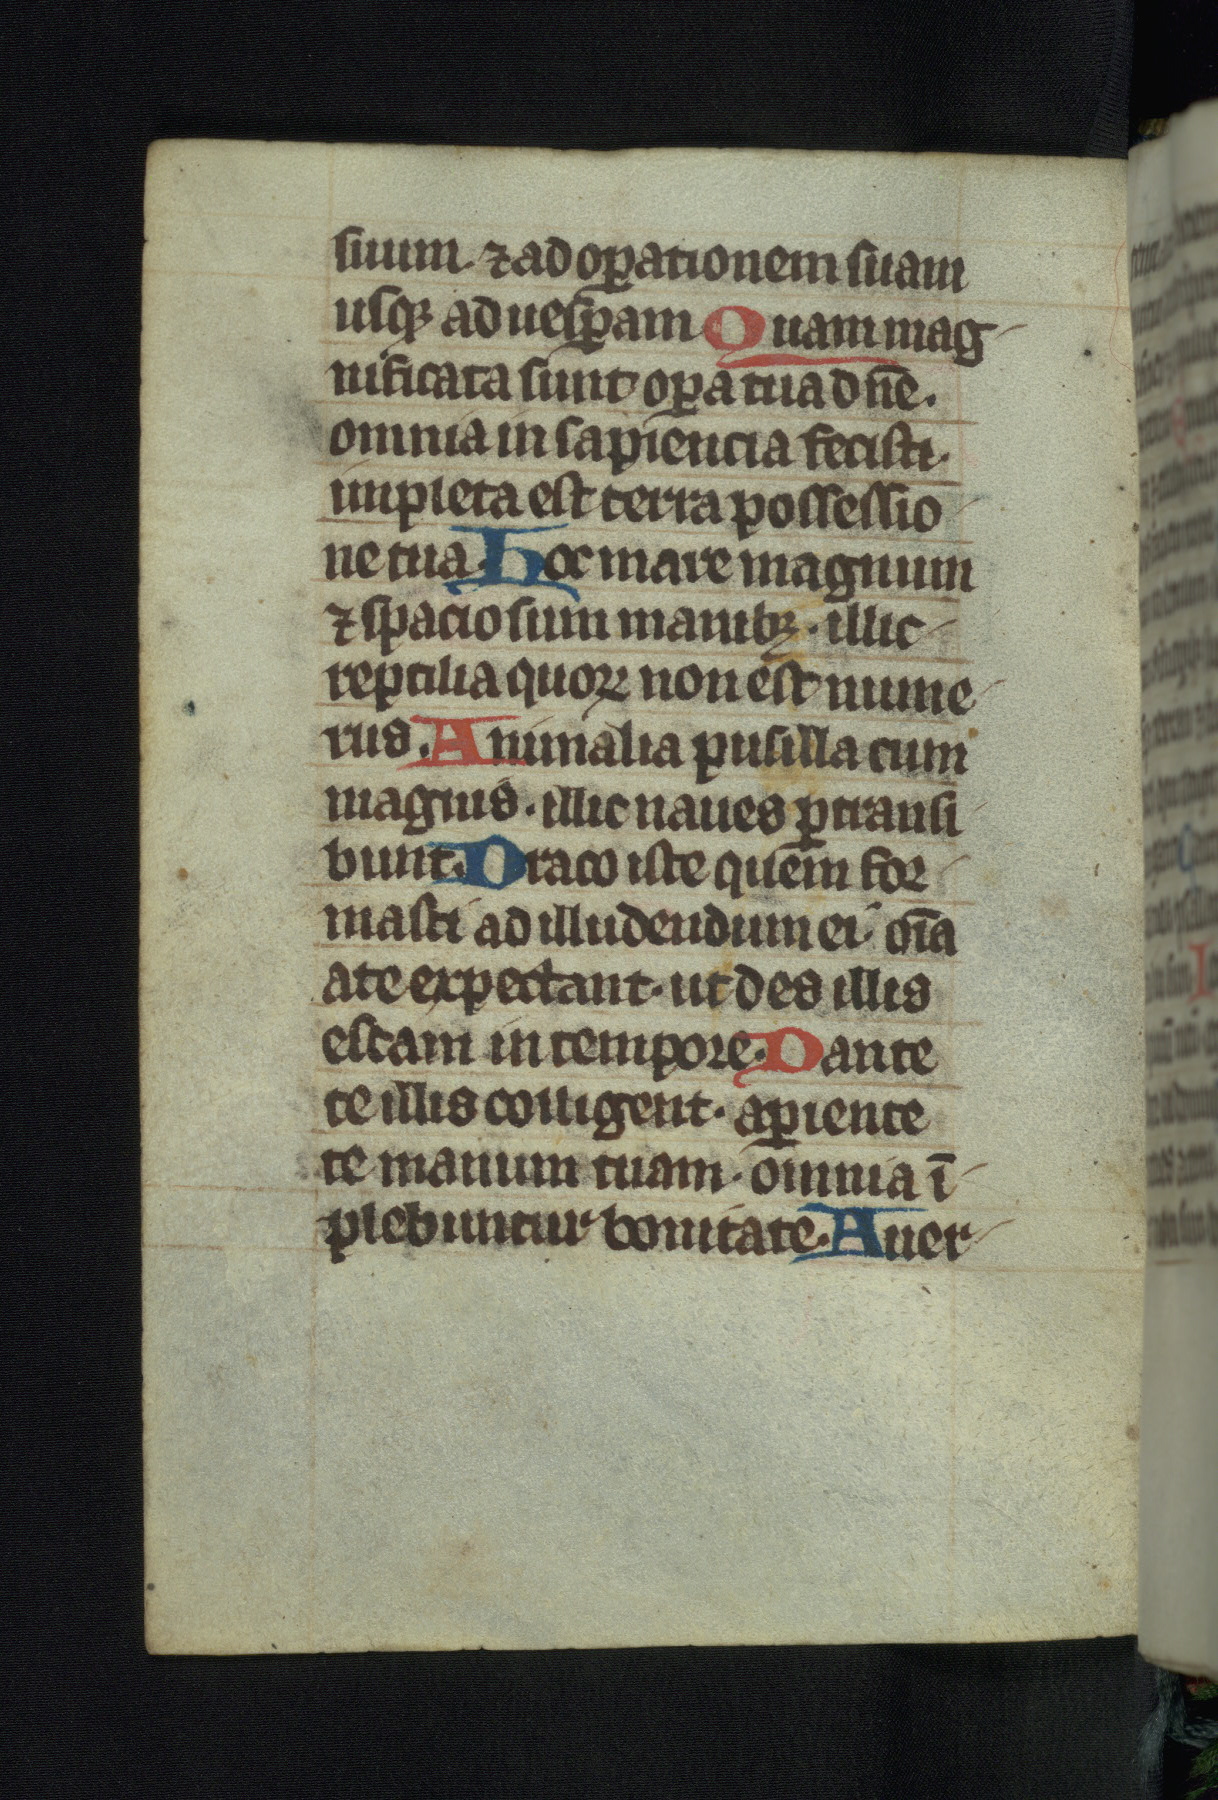 suum. ⁊ ad oꝑationem suam
usqꝫ ad uesꝑam Quam mag
nificata sunt oꝑa tua dn̄e.
omnia in sapiencia fecisti.
impleta est terra possessio
ne tua. Hoc mare magnum
⁊ spaciosum manibꝫ. illic
reptilia quoꝝ non est nume
rus. Animalia pusilla cum
magnis. illic naues ꝑtransi
bunt. Draco iste quem for
masti ad illudendum ei om̄a
a te expectant. ut des illis
escam in tempore. Dante
te illis colligent. aꝑiente
te manum tuam. omnia ī
plebuntur bonitate. Auer